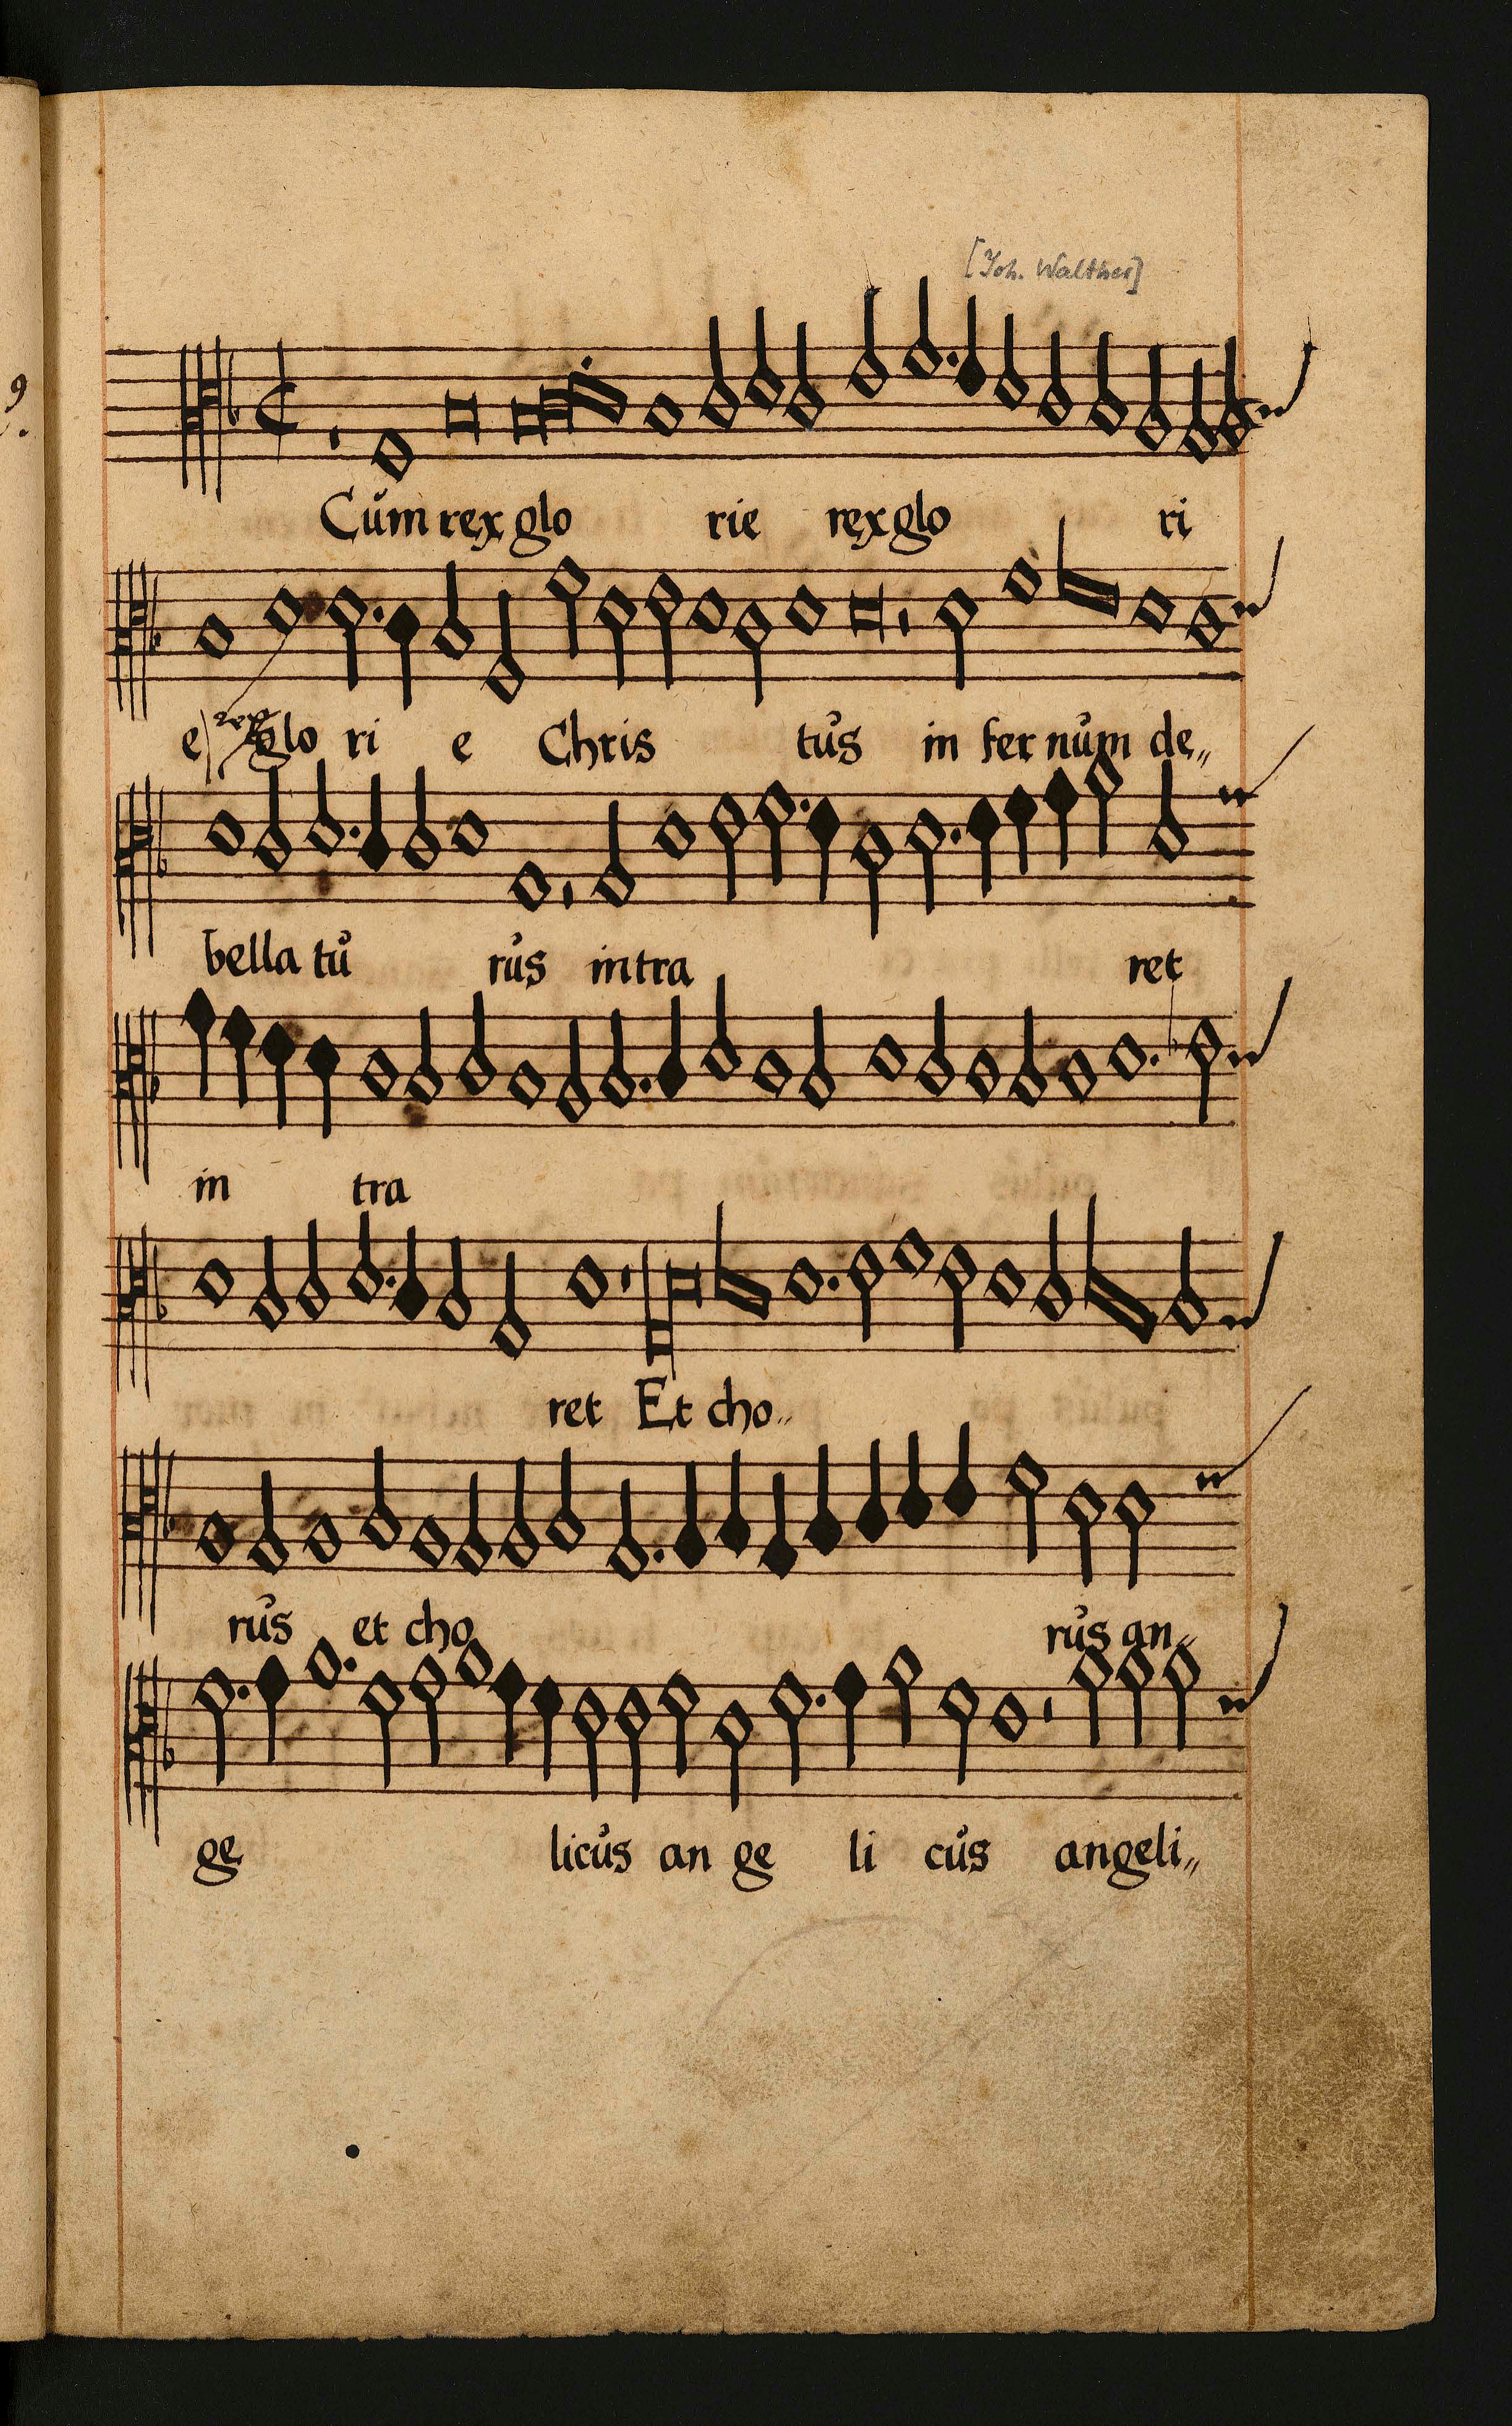 9
[Joh. Walther]
Cům rex glo rie rex glo ri
e rex glo ri e Chris tůs in fer nům de„
bella tů růs intra ret
in tra
ret Et cho„
růs et cho růs an„
ge licůs an ge li cůs angeli„